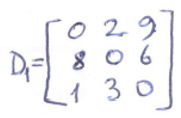 D₁ =
0 2 9
8 0 6
1 3 0